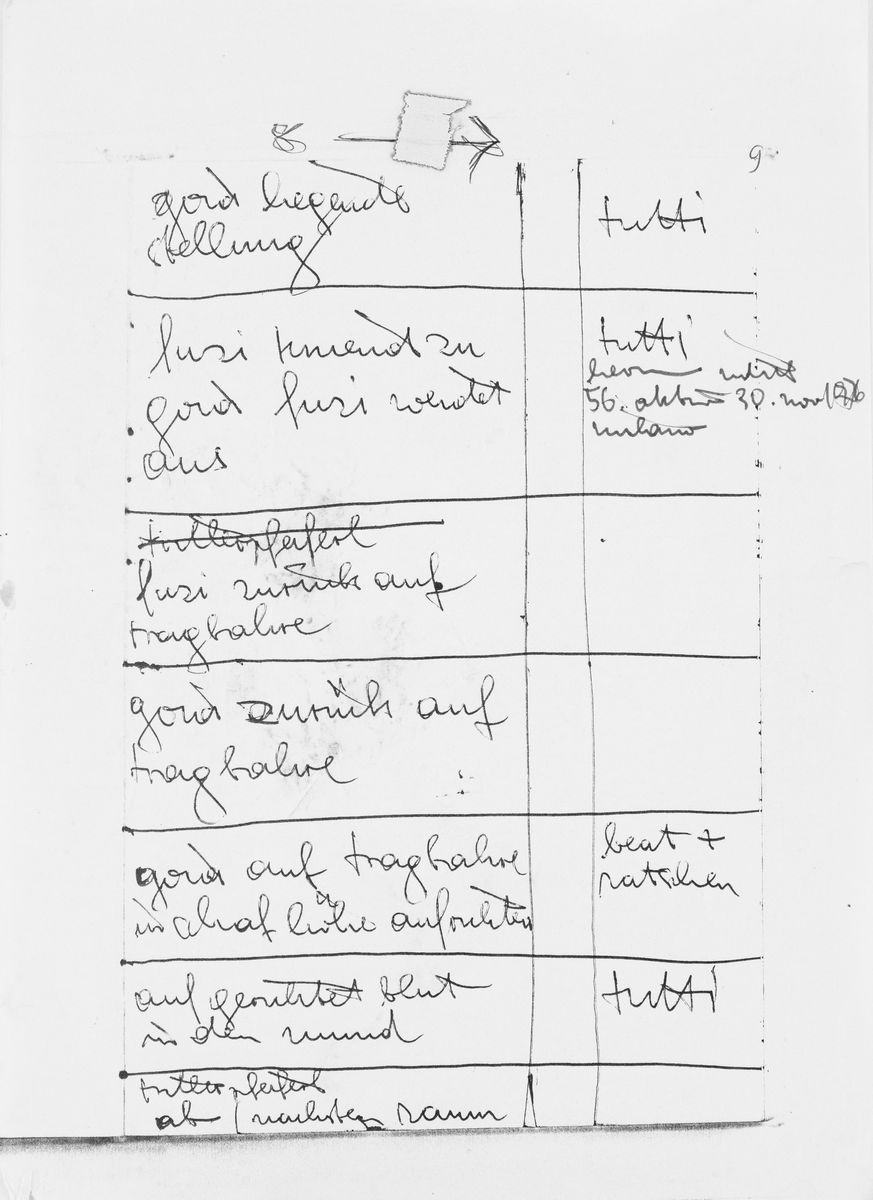 8
9
gord liegende
stellung
tutti
fuzi
zu
tutti
gord fuzi weidet
56. aktion 30. nov 1976
aus
milano
trillerpfeiferl
fuzi zurück auf
tragbahre
gord zurück auf
tragbahre
gord auf tragbahre
beat +
ratschen
in schaf höhe aufrichten
auf gerichtet blut
tutti
in den mund
trillerpfeiferl
ab (nächsten raum